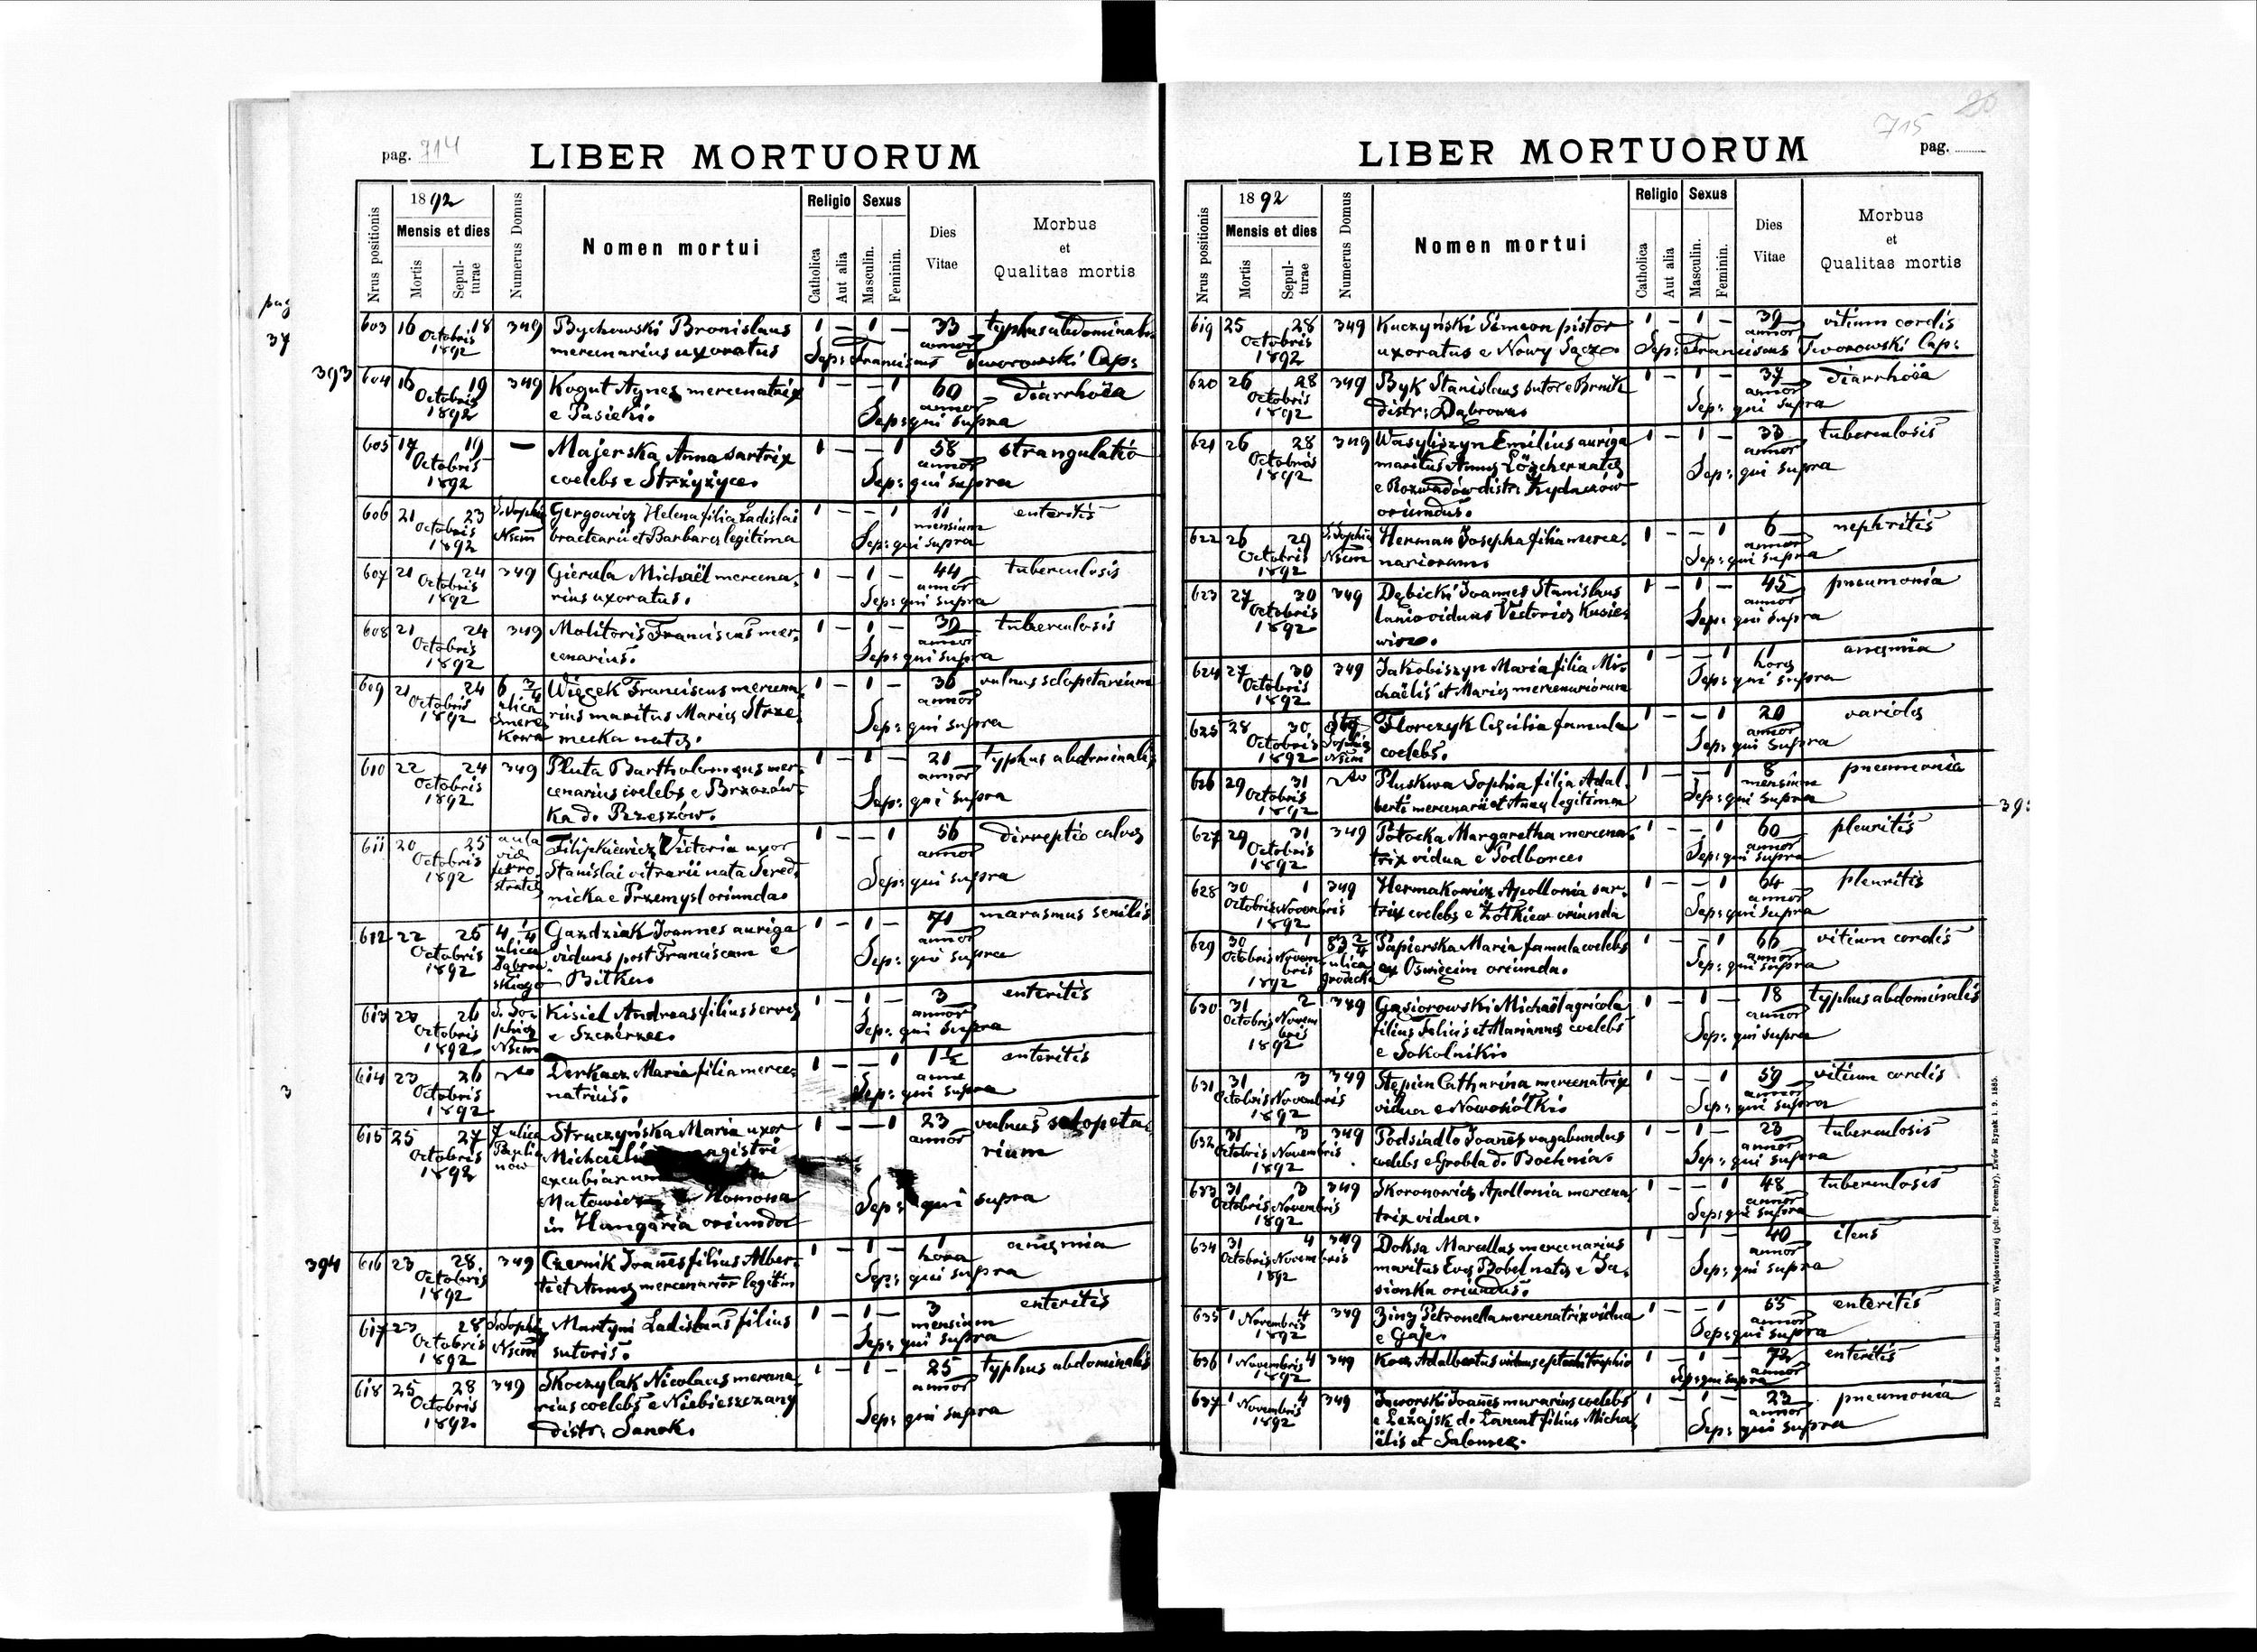 pag. 714
LIBER MORTUORUM
Nrus positionis
1892
Mensis et dies
Mortis
Sepulturae
Numerus Domus
Nomen mortui
Religio
Catholica
Aut alia
Sexus
Masculin.
Feminin.
Dies Vitae
Morbus et Qualitas mortis
pag
37
603 16 18 Octobris 1892 349 Bychowski Bronislaus 1 – 1 – 33 annor typhus abdominalis
mercenarius uxoratus Sep: Franciscus Tworowski Cap:
393
604 16 19 Octobris 1892 349 Kogut Agnes mercenatrix 1 – – 1 60 annor diarrhöea
e Pasieki. Sep: qui supra
605 17 19 Octobris 1892 – Majerska Anna sartrix 1 – – 1 58 annor strangulatio
coelebs e Strzyżyce. Sep: qui supra
606 21 23 Octobris 1892 S. Sophie Nsem Gergowicz Helena filia Ladislai 1 – – 1 11 mensium enteritis
bractearii et Barbarę legitima Sep: qui supra
607 21 24 Octobris 1892 349 Gierula Michaël mercena. 1 – 1 – 44 annor tuberculosis
rius uxoratus. Sep: qui supra
608 21 24 Octobris 1892 349 Molitoris Franciscus mer. 1 – 1 – 39 annor tuberculosis
cenarius. Sep: qui supra
609 21 24 Octobris 1892 6 3/4 ulica Kowa Więcek Franciscus mercena. 1 – 1 – 36 annor vulnus sclopetarium
rius maritus Marię Strze
mecka natę. Sep: qui supra
610 22 24 Octobris 1892 349 Pluta Bartholomęus mer. 1 – 1 – 21 annor typhus abdominalis
cenarius coelebs e Brzozów-
ka d. Rzeszów. Sep: qui supra
611 20 25 Octobris 1892 aula Filipkiewicz Victoria uxor 1 – – 1 56 annor
Stanislai vitrarii nata Sered.
nicka e Przemysl oriunda. Sep: qui supra
612 22 26 Octobris 1892 4 1/4 ulica Dąbrowskiego Gazdziak Joannes auriga 1 – 1 – 71 annor marasmus senilis
viduus post Franciscam e
Bitków Sep: qui supra
613 23 26 Octobris 1892 S. Sophię Nsem Kisiel Andreas filius servę 1 – 1 – 3 annor enteritis
e Szczérzec. Sep: qui supra
3
614 23 26 Octobris 1892 Derkacz Maria filia merce. 1 – – 1 1 1/2 anni enteritis
natricis. Sep: qui supra
615 25 27 Octobris 1892 7 ulica Paulinów Struczyńska Maria uxor 1 – – 1 23 annor vulnus sclopeta.
Michaëlis magistri rium
excubiarum
Matowicz Homona
in Hungaria oriunda Sep: qui supra
394
616 23 28 Octobris 1892 349 Czernik Joanes filius Alber. 1 – 1 – 1 hora anęmia
ti et Annę mercenarior legitim Sep: qui supra
617 23 28 Octobris 1892 S. Sophię Nsem Martyni Ladislaus filius 1 – 1 – 3 mensium enteritis
sutoris. Sep: qui supra
618 25 28 Octobris 1892 349 Skoczylak Nicolaus mercena. 1 – 1 – 25 annor typhus abdominalis
rius coelebs e Niebieszczany
distr: Sanok. Sep: qui supra
715
20
pag.
LIBER MORTUORUM
Nrus positionis
1892
Mensis et dies
Mortis
Sepulturae
Numerus Domus
Nomen mortui
Religio
Catholica
Aut alia
Sexus
Masculin.
Feminin.
Dies Vitae
Morbus et Qualitas mortis
619 25 28 Octobris 1892 349 Kuczyński Simeon pistor 1 – 1 – 39 annor vitium cordis
uxoratus e Nowy Sącz. Sep: Franciscus Tworowski Cap:
620 26 28 Octobris 1892 349 Byk Stanislaus sutor e Brnik 1 – 1 – 37 annor diarrhöea
distr: Dąbrowa. Sep: qui supra
621 26 28 Octobris 1892 349 Wasyliszyn Emilius auriga 1 – 1 – 33 annor tuberculosis
maritus Annę natę
e Rozwadów distr: Żydaczów
oriundus. Sep: qui supra
622 26 29 Octobris 1892 S. Sophię Nsem Herman Josepha filia merce. 1 – – 1 6 annor nephritis
nariorum Sep: qui supra
623 27 30 Octobris 1892 349 Dębicki Joannes Stanislaus 1 – 1 – 45 annor pneumonia
lanio viduus Victorię Kusie
wicz. Sep: qui supra
624 27 30 Octobris 1892 349 Jakobiszyn Maria filia Mi- 1 – – 1 1 horę anęmia
chaëlis et Marię mercenariorum Sep: qui supra
625 28 30 Octobris 1892 Sophię Nsem Florczyk Cęcilia famula 1 – – 1 20 annor variolę
coelebs. Sep: qui supra
626 29 31 Octobris 1892 Pluskwa Sophia filia Adal. 1 – – 1 8 mensium pneumonia
berti mercenarii et Annę legitima Sep: qui supra
39
627 29 31 Octobris 1892 349 Potocka Margaretha mercena. 1 – – 1 60 annor pleuritis
trix vidua e Podborce Sep: qui supra
628 30 Octobris 1 Novembris 1892 349 Hermakowicz Apollonia sar. 1 – – 1 64 annor pleuritis
trix coelebs e Żółkiew oriunda Sep: qui supra
629 30 Octobris 1 Novembris 1892 83 2/4 ulica Gródecka Papierska Maria famula coelebs – – 1 66 annor vitium cordis
ex Oswięcim oriunda. Sep: qui supra
630 31 Octobris 2 Novembris 1892 349 Gąsiorowski Michaël agricola 1 – 1 – 18 annor typhus abdominalis
filius Felicis et Mariannę coelebs
e Sokolniki. Sep: qui supra
631 31 Octobris 3 Novembris 1892 349 Stępien Catharina mercenatrix 1 – – 1 59 annor vitium cordis
vidua e Nowosiółki. Sep: qui supra
632 31 Octobris 3 Novembris 1892 349 Podsiadło Joanes vagabundus 1 – 1 – 23 annor tuberculosis
coelebs e Grobla d. Bochnia. Sep: qui supra
633 31 Octobris 3 Novembris 1892 349 Skoronowicz Apollonia mercena. 1 – – 1 48 annor tuberculosis
trix vidua. Sep: qui supra
634 31 Octobris 4 Novembris 1892 349 Doksa Marcellus mercenarius 1 – 1 – 40 annor ileus
maritus Evę Bobel natę e Ja.
sionka oriundus. Sep: qui supra
635 1 4 Novembris 1892 349 Petronella mercenatrix vidua 1 – – 1 65 annor enteritis
e Gaje. Sep: qui supra
636 1 4 Novembris 1892 349 Koez Adalbertus viduus eptochotrophio 1 – 1 – 72 annor enteritis
Sep: qui supra
637 1 4 Novembris 1892 349 Jaworski Joanes murarius coelebs 1 – 1 – 23 annor pneumonia
e Leżajsk d. Łancut filius Micha.
ëlis et Salomeę. Sep: qui supra
Do nabycia w drukarni Anny Wajdowiczowej (pdr. Poremby), Lwów Rynek l. 9. 1885.